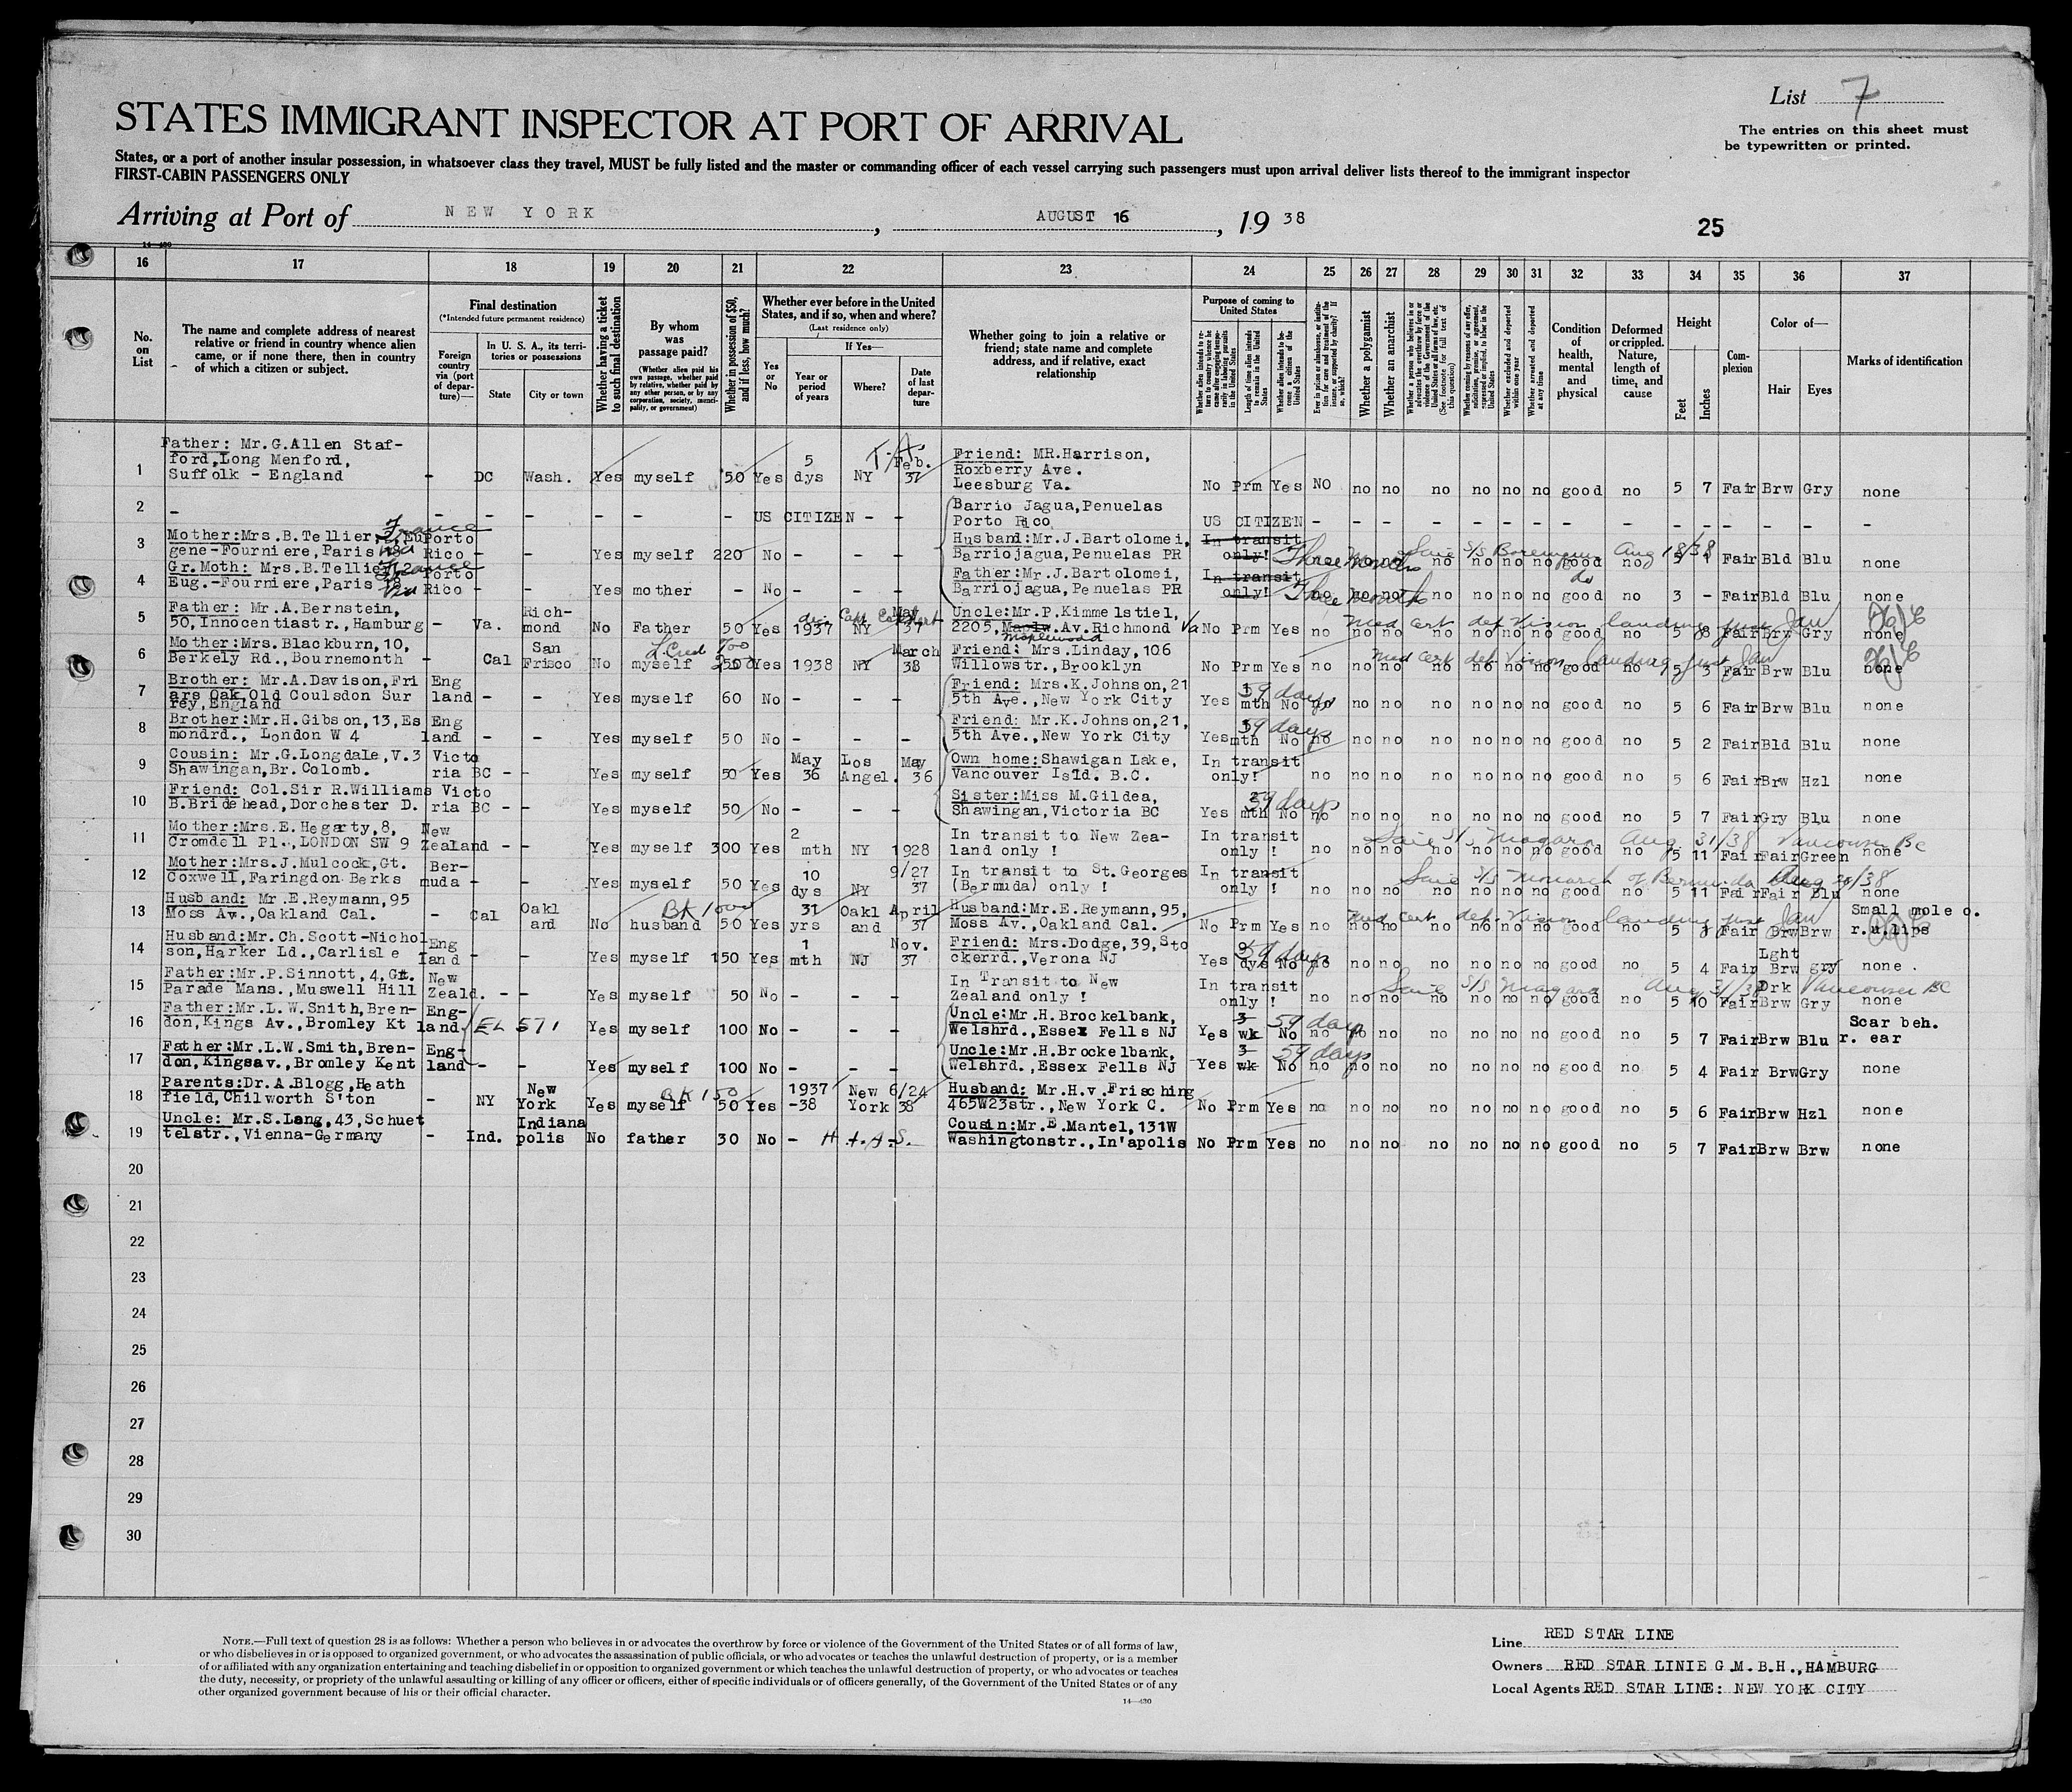 List 7
The entries on this sheet must
be typewritten or printed.
STATES IMMIGRANT INSPECTOR AT PORT OF ARRIVAL
States, or a port of another insular possession, in whatsoever class they travel, MUST be fully listed and the master or commanding officer of each vessel carrying such passengers must upon arrival deliver lists thereof to the immigrant inspector
FIRST-CABIN PASSENGERS ONLY
Arriving at Port of NEW YORK, AUGUST 16, 1938
25
14—430
16 17 18 19 20 21 22 23 24 25 26 27 28 29 30 31 32 33 34 35 36 37
No. on List
The name and complete address of nearest relative or friend in country whence alien came, or if none there, then in country of which a citizen or subject.
Final destination
(*Intended future permanent residence)
Foreign country via (port of departure)—
In U. S. A., its territories or possessions
State
City or town
Whether having a ticket to such final destination
By whom was passage paid?
(Whether alien paid his own passage, whether paid by relative, whether paid by any other person, or by any corporation, society, municipality, or government)
Whether in possession of $50, and if less, how much?
Whether ever before in the United States, and if so, when and where?
(Last residence only)
Yes or No
If Yes—
Year or period of years
Where?
Date of last departure
Whether going to join a relative or friend; state name and complete address, and if relative, exact relationship
Purpose of coming to United States
Length of time alien intends to remain in the United States
Whether alien intends to become a citizen of the United States
Whether a polygamist
Whether an anarchist
Whether excluded and deported within one year
Whether arrested and deported at any time
Condition of health, mental and physical
Deformed or crippled. Nature, length of time, and cause
Height
Feet
Inches
Complexion
Color of—
Hair
Eyes
Marks of identification
1 Father: Mr.G.Allen Staf-
ford,Long Menford,
Suffolk - England - DC Wash. Yes myself 50 Yes 5 dys NY Feb. 37 Friend: MR.Harrison,
Roxberry Ave.
Leesburg Va. No Prm Yes NO no no no no no no good no 5 7 Fair Brw Gry none
2 - - - - - - - US CITIZEN - - Barrio Jagua,Penuelas
Porto Rico US CITIZEN - - - - - - - - - - - - -
3 Mother:Mrs.B.Tellier, France
gene-Fourniere,Paris 18 Porto Rico - - Yes myself 220 No - - - Husband:Mr.J.Bartolomei,
Barriojagua,Penuelas PR In transit only! Three months no no no no good no 5 Fair Bld Blu none
4 Gr.Moth: Mrs.B.Tellier France
Eug.-Fourniere,Paris 18 Porto Rico - - Yes mother - No - - - Father:Mr.J.Bartolomei,
Barriojagua,Penuelas PR In transit only! Three months no no no no no no no good no 3 - Fair Bld Blu none
5 Father: Mr.A.Bernstein,
50,Innocentiastr.,Hamburg - Va. Rich-mond No Father 50 Yes 1937 NY May 37 Uncle:Mr.P.Kimmelstiel,
2205, Maplewood Av.Richmond Va No Prm Yes no no no no no no no good no 5 8 Fair Bry Gry none
Med cert def vision
6 Mother:Mrs.Blackburn,10,
Berkely Rd.,Bournemonth - Cal San Frisco No myself 250 Yes 1938 NY March 38 Friend: Mrs.Linday,106
Willowstr.,Brooklyn No Prm Yes no no no no no no no good no 5 3 Fair Brw Blu none
Med cert def vision
7 Brother: Mr.A.Davison,Fri
ars Oak,Old Coulsdon Sur
rey,England Eng land - - Yes myself 60 No - - - Friend: Mrs.K.Johnson,21
5th Ave.,New York City Yes 1 mth No no 59 days no no no no no no good no 5 6 Fair Brw Blu none
8 Brother:Mr.H.Gibson,13,Es
mondrd., London W 4 Eng land - - Yes myself 50 No - - - Friend: Mr.K.Johnson,21,
5th Ave.,New York City Yes mth No no 59 days no no no no no no good no 5 2 Fair Bld Blu none
9 Cousin: Mr.G.Longdale,V.3
Shawingan,Br.Colomb. Victo ria BC - - Yes myself 50 Yes May 36 Los Angel. May 36 Own home:Shawigan Lake,
Vancouver Isld. B.C. In transit only! no no no no no no no good no 5 6 Fair Brw Hzl none
10 Friend: Col.Sir R.Williams
B.Bridehead,Dorchester D. Victo ria BC - - Yes myself 50 No - - - Sister:Miss M.Gildea,
Shawingan,Victoria BC Yes mth No no 59 days no no no no no no good no 5 7 Fair Gry Blu none
11 Mother:Mrs.E.Hegarty,8,
Cromdell Pl.,LONDON SW 9 New Zealand - - Yes myself 300 Yes 2 mth NY 1928 In transit to New Zea-
land only ! In transit only ! no no no no no no no good no 5 11 Fair Fair Green none
S/S Niagara Aug 31/38 Vancouver BC
12 Mother:Mrs.J.Mulcock,Gt.
Coxwell,Faringdon Berks Ber- muda - - Yes myself 50 Yes 10 dys NY 9/27 37 In transit to St.Georges
(Bermuda) only ! In transit only ! no no no no no no no good no 5 11 Fair Fair Blu none
S/S Monarch of Bermuda
13 Husband: Mr.E.Reymann,95
Moss Av.,Oakland Cal. - Cal Oakl and No husband 50 Yes 31 yrs Oakl and April 37 Husband:Mr.E.Reymann,95,
Moss Av.,Oakland Cal. No Prm Yes no no no no no no no good no 5 Fair Brw Brw Small mole o.
r.u.lips
Med cert def vision
14 Husband:Mr.Ch.Scott-Nichol
son,Harker Ld.,Carlisle Eng land - - Yes myself 150 Yes 1 mth NJ Nov. 37 Friend: Mrs.Dodge,39,Sto
ckerrd.,Verona NJ Yes dys No no 59 days no no no no no no good no 5 4 Fair Lght Brw gry none .
15 Father:Mr.P.Sinnott,4,Gt.
Parade Mans.,Muswell Hill New Zeald. - - Yes myself 50 No - - - In Transit to New
Zealand only ! In transit only ! no no no no no no no good no 5 10 Fair Drk Brw Gry none
S/S Niagara Aug 31/38 Vancouver BC
16 Father:Mr.L.W.Snith,Bren-
don,Kings Av.,Bromley Kt Eng- land. EL 571 Yes myself 100 No - - - Uncle:Mr.H.Brockelbank,
Welshrd.,Essex Fells NJ Yes 3 wk No no 59 days no no no no no no good no 5 7 Fair Brw Blu Scar beh.
r. ear
17 Father:Mr.L.W.Smith,Bren-
don,Kingsav.,Bromley Kent Eng- land - - Yes myself 100 No - - - Uncle:Mr.H.Brockelbank,
Welshrd.,Essex Fells NJ Yes 3 wk No no 59 days no no no no no no good no 5 4 Fair Brw Gry none
18 Parents:Dr.A.Blogg,Heath
field,Chilworth S'ton - NY New York Yes myself 50 Yes 1937 -38 New York 6/24 38 Husband: Mr.H.v.Frisching
465W23str.,New York C. No Prm Yes no no no no no no no good no 5 6 Fair Brw Hzl none
19 Uncle: Mr.S.Lang,43,Schuet
telstr.,Vienna-Germany - Ind. Indiana polis No father 30 No - H.I.A.S. Cousin:Mr.E.Mantel,131W
Washingtonstr.,In'apolis No Prm Yes no no no no no no no good no 5 7 Fair Brw Brw none
20
21
22
23
24
25
26
27
28
29
30
NOTE.—Full text of question 28 is as follows: Whether a person who believes in or advocates the overthrow by force or violence of the Government of the United States or of all forms of law,
or who disbelieves in or is opposed to organized government, or who advocates the assassination of public officials, or who advocates or teaches the unlawful destruction of property, or is a member
of or affiliated with any organization entertaining and teaching disbelief in or opposition to organized government or which teaches the unlawful destruction of property, or who advocates or teaches
the duty, necessity, or propriety of the unlawful assaulting or killing of any officer or officers, either of specific individuals or of officers generally, of the Government of the United States or of any
other organized government because of his or their official character.
14—430
Line RED STAR LINE
Owners RED STAR LINIE G.M.B.H.,HAMBURG
Local Agents RED STAR LINE: NEW YORK CITY